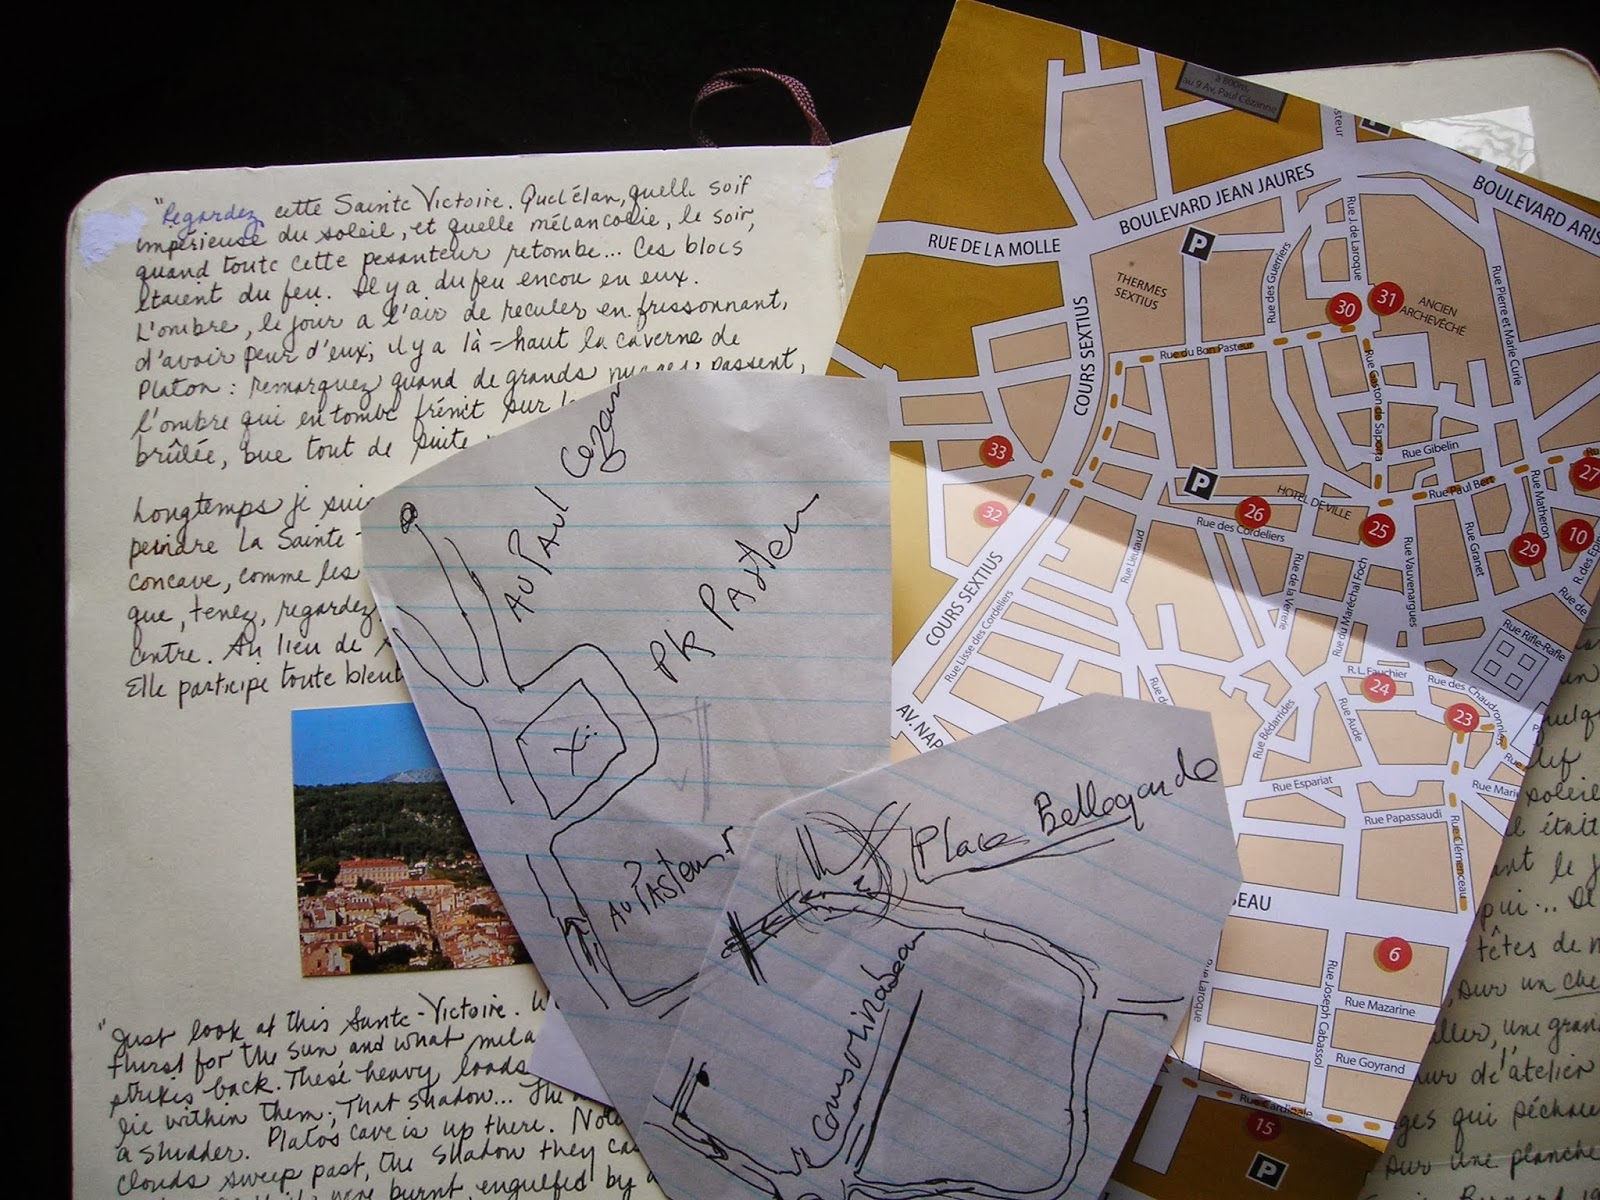 "Regardez cette Sainte Victoire. Quel élan, quelle soif
impérieuse du soleil, et quelle mélancolie, le soir,
quand toute cette pesanteur retombe... Ces blocs
étaient du feu. Il y a du feu encou en eux.
L'ombre, le jour a l'air de reculer en frissonnant,
d'avoir peur d'eux; il y a là-haut la caverne de
Platon: remarquez quand de grands nuages passent,
l'ombre qui en tombe frémit sur
brûlée, bue tout de suite
Longtemps je suis
peindre la Sainte-
concave, comme les
que, tenez, regardez
centre. Au lieu de
Elle participe toute bleut
"Just look at this Sante-Victoire.
thirst for the sun and what mela
strikes back. These heavy loads
lie within them; That shadow... The
a shudder. Platos cave is up there. Not
clouds sweep past, the shadow they ca
were burnt, engulfed by
AU PAUL Cezan
PK Pasteur
X
AU PASTEUR
Place Bellegarde
Cours Mirabeau
au 9 Av. Paul Cézanne
P
BOULEVARD JEAN JAURES
BOULEVARD ARIS
RUE DE LA MOLLE
P
THERMES
SEXTIUS
Rue des Guerriers
Rue J. de Laroque
Rue Pierre et Marie Curie
30
31
ANCIEN
ARCHEVÊCHÉ
COURS SEXTIUS
Rue du Bon Pasteur
Rue Gaston de Saporta
Rue Gibelin
33
32
P
26
HOTEL DE VILLE
Rue des Cordeliers
25
Rue Paul Bert
Rue Matheron
27
10
29
R. des Epin
Rue Granet
Rue Vauvenargues
Rue du Maréchal Foch
Rue de la Verrerie
Rue Lieutaud
COURS SEXTIUS
Rue Lisse des Cordeliers
Rue de
Rue Rifle-Rafle
R.L. Fauchier
24
Rue des Chaudronniers
23
Rue Aude
Rue Bédarrides
AV. NAP
Rue Espariat
Rue Mari
Rue Papassaudi
Rue Clémenceau
BEAU
6
Rue Mazarine
Rue Joseph Cabassol
Rue Goyrand
Laroque
Rue Cardinale
15
P
soleil
était
ant le j
qui... Il
têtes de
sur un che
aller, une gran
mur de l'atelier
ges qui pêche
sur une planche